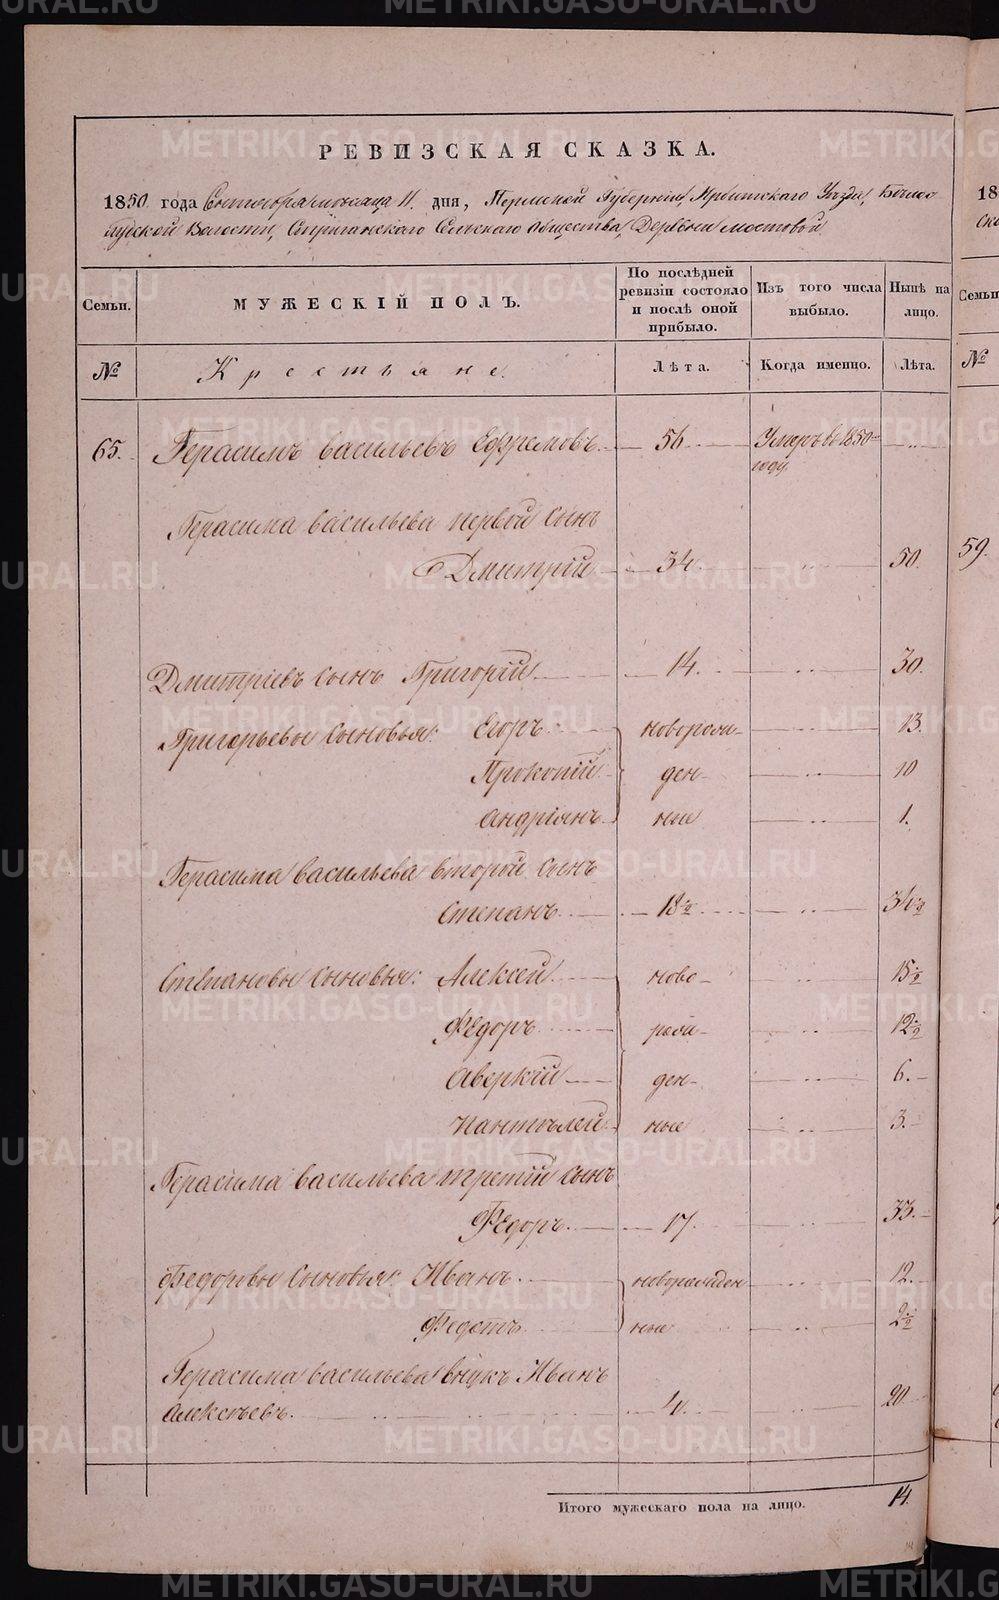 РЕВИЗСКАЯ СКАЗКА.
1850 года Сентября месяца 11 дня, Пермской Губернии, Ирбитскаго Уѣзда, Бѣлослудской Волости, Стриганскаго Сельскаго Общества, Деревни Мостовой
Семьи.
МУЖЕСКІЙ ПОЛЪ.
По послѣдней ревизіи состояло и послѣ оной прибыло.
Изъ того числа выбыло.
Нынѣ на лицо.
№ Крестьяне. Лѣта. Когда именно. Лѣта.
65. Герасимъ Васильевъ Ефремовъ. 56 Умеръ въ 1850 году
Герасима Васильева первой сынъ
Дмитрій 34. 50.
Дмитріевъ сынъ Григорій 14. 30.
Григорьевы сыновья: Егоръ новорож- 13.
Прокопій ден- 10
Андріянъ ные 1.
Герасима Васильева второй сынъ
Степанъ 18½ 34½
Степановы сыновья: Алексей ново- 15½
Федоръ рож- 12½
Аверкій ден- 6.
Пантелей ные 3.
Герасима Васильева третій сынъ
Федоръ 17. 33.
Федоровы сыновья: Иванъ новорожден 12.
Федотъ ные 2½
Герасима Васильева внукъ Иванъ
Алексѣевъ. 4. 20
Итого мужескаго пола на лицо. 14.
18
Семьи
№
59.
METRIKI.GASO-URAL.RU